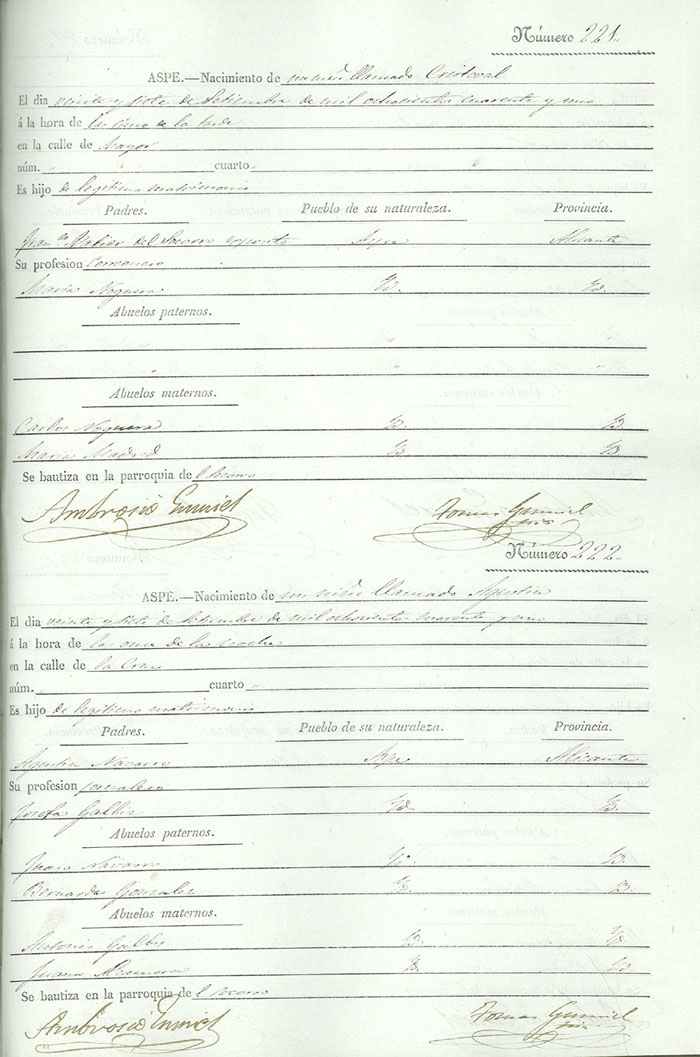 Número 221.
ASPE.—Nacimiento de un niño llamado Cristoval
El dia veinte y siete de Setiembre de mil ochocientos cuarenta y uno
á la hora de las cinco de la tarde
en la calle de Mayor
núm. " cuarto " "
Es hijo de legitimo matrimonio
Padres. Pueblo de su naturaleza. Provincia.
Fran.co Xabier del Socorro esposito Aspe Alicante
Su profesion
Maria Noguera Yd. Yd.
Abuelos paternos.
" "
" " "
Abuelos maternos.
Carlos Noguera Yd. Yd.
Maria Madrid Yd. Yd.
Se bautiza en la parroquia del Socorro
Ambrosio Tomas
Número 222.
ASPE.—Nacimiento de un niño llamado Agustin
El dia veinte y siete de Setiembre de mil ochocientos cuarenta y uno
á la hora de las once de la noche
en la calle de la Cruz
núm. cuarto "
Es hijo de legitimo matrimonio
Padres. Pueblo de su naturaleza. Provincia.
Agustin Navarro Aspe Alicante
Su profesion jornalero
Josefa Galbis Yd. Yd.
Abuelos paternos.
Juan Navarro Yd. Yd.
Bernarda Gonzalez Yd. Yd.
Abuelos maternos.
Antonio Galbis Yd. Yd.
Juana Yd. Yd.
Se bautiza en la parroquia del Socorro
Ambrosio Tomas